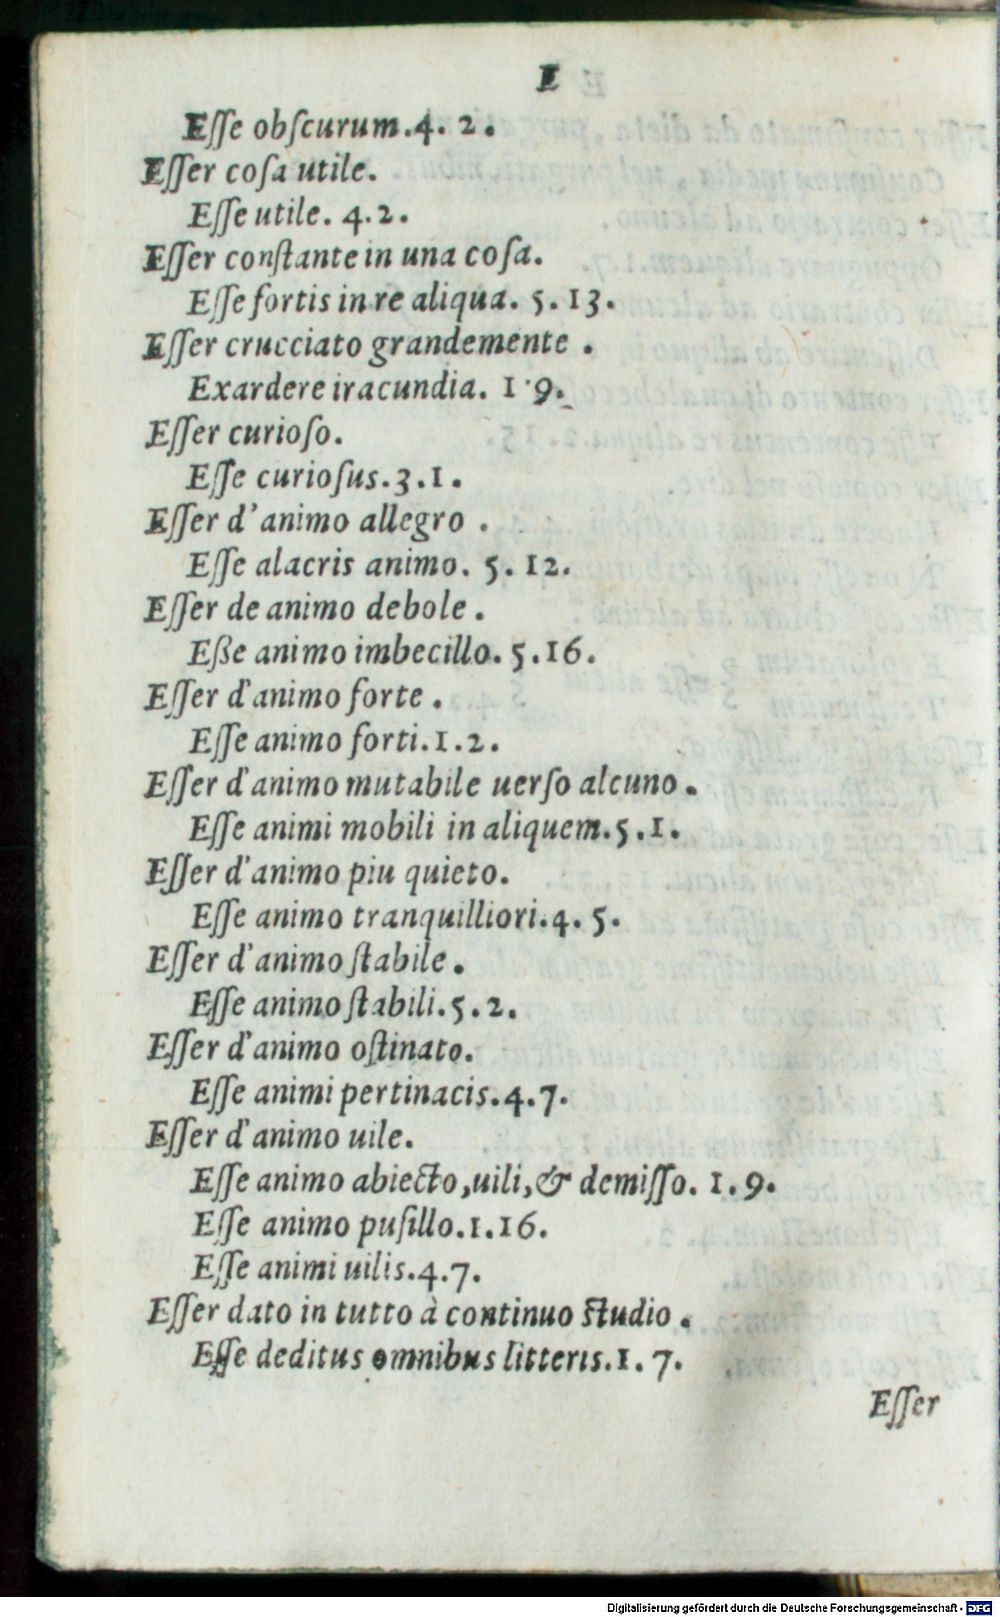 E
Eſſe obſcurum.4. 2.
Eſſer coſa utile.
Eſſe utile. 4.2.
Eſſer conſtante in una coſa.
Eſſe fortis in re aliqua. 5.13.
Eſſer crucciato grandemente .
Exardere iracundia. 1.9.
Eſſer curioſo.
Eſſe curioſus.3.1.
Eſſer d'animo allegro .
Eſſe alacris animo. 5. 12.
Eſſer de animo debole .
Eße animo imbecillo. 5.16.
Eſſer d'animo forte .
Eſſe animo forti.1.2.
Eſſer d'animo mutabile uerſo alcuno .
Eſſe animi mobili in aliquem.5.1.
Eſſer d'animo piu quieto.
Eſſe animo tranquilliori.4. 5.
Eſſer d'animo ſtabile .
Eſſe animo ſtabili.5.2.
Eſſer d'animo oſtinato.
Eſſe animi pertinacis.4.7.
Eſſer d'animo uile.
Eſſe animo abiecto,uili,& demiſſo. 1.9.
Eſſe animo puſillo.1.16.
Eſſe animi uilis.4.7.
Eſſer dato in tutto à continuo ſtudio .
Eſſe deditus omnibus litteris.1. 7.
Eſſer
Digitalisierung gefördert durch die Deutsche Forschungsgemeinschaft - DFG